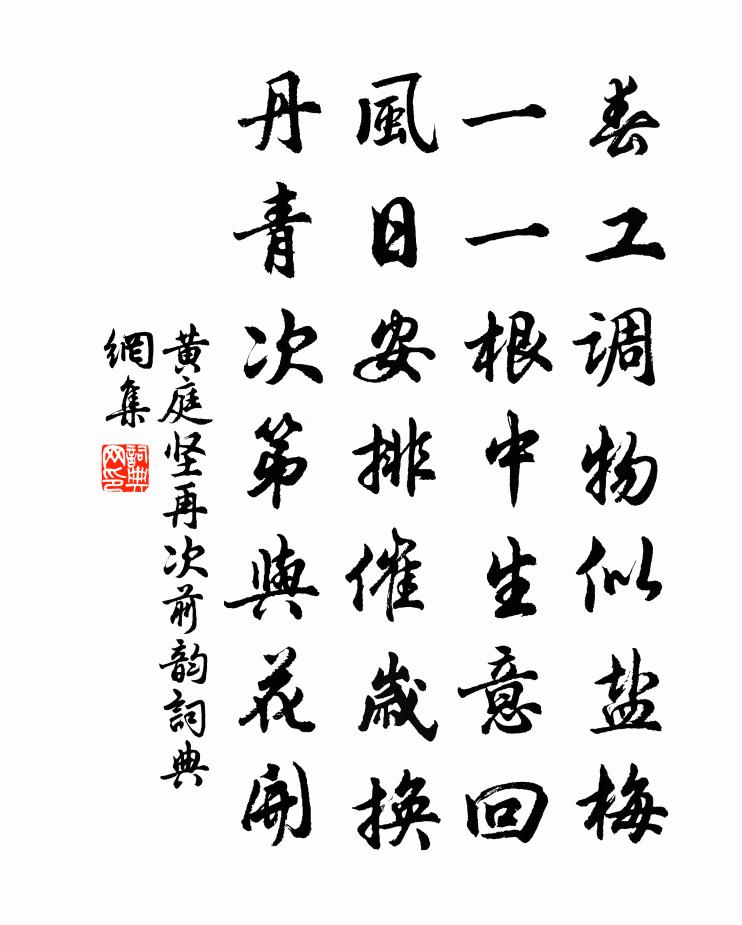 春工调物似盐梅
一一根中生意回
風日安排催歲換
丹青次第與花開
黄庭坚再次前韵詞典
網集
詞典網印